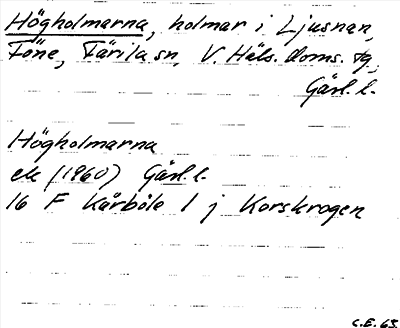 Högholmarna, holmar i Ljusnan,
Föne, Färila sn, V. Häls. doms. tg,
Gävl. l.
Högholmarna
ek (1960) Gävl. l.
16 F Kårböle 1 j Korskrogen
C.E. 63.